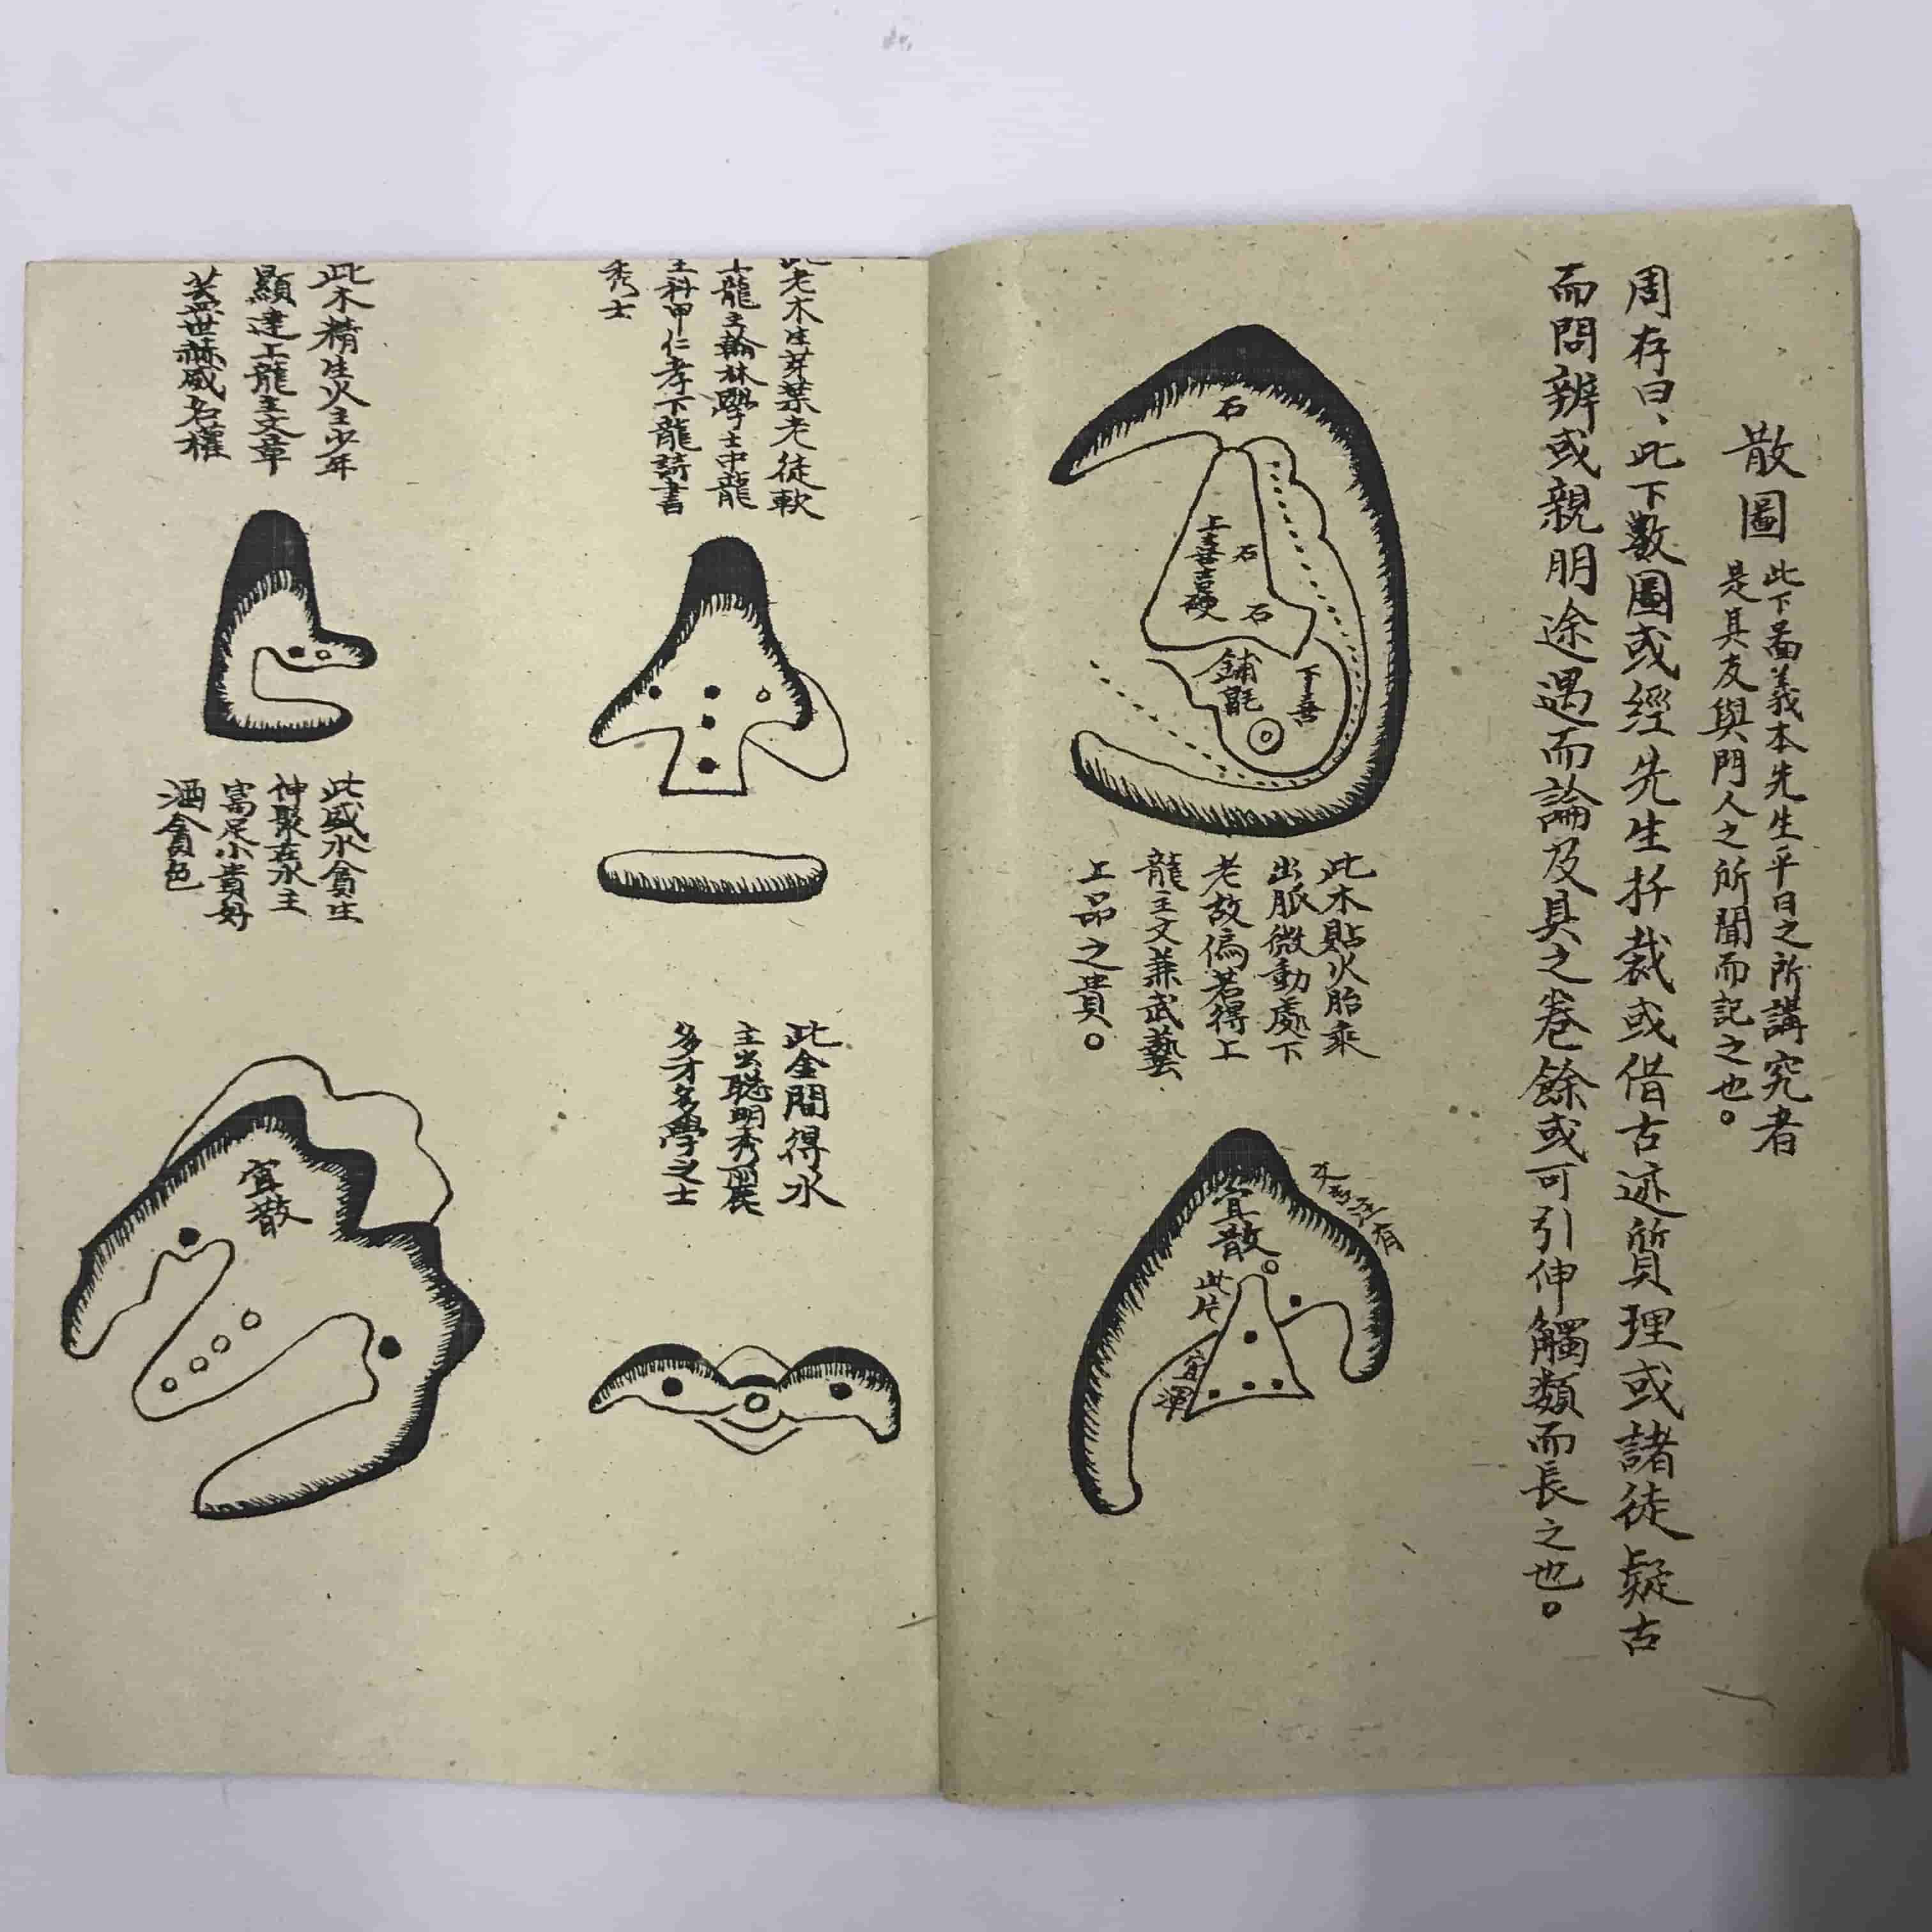 散圖
此下啚義本先生平日之所講究者
是其友與門人之所聞而記之也。
周存曰、此下數圖或經先生扦裁或借古迹質理或諸徒疑古
而問辨或親朋途遇而論及具之卷餘或可引伸觸類而長之也。
石
石
石
鋪氈
此木貼火胎乘
出脈微動處下
老故偏若得上
龍主文兼武藝
上品之貴。
宜散
此片
宜渾
老木生芽葉老徒軟
龍主翰林學士中龍
主科甲仁孝下龍詩書
秀士
此金間得水
主出聰明秀麗
多才多學之士
此木精生火主少年
顯達上龍主文章
蓋世赫威名權
此盛水貪生
神聚在水主
富足小貴好
酒貪色
宜散